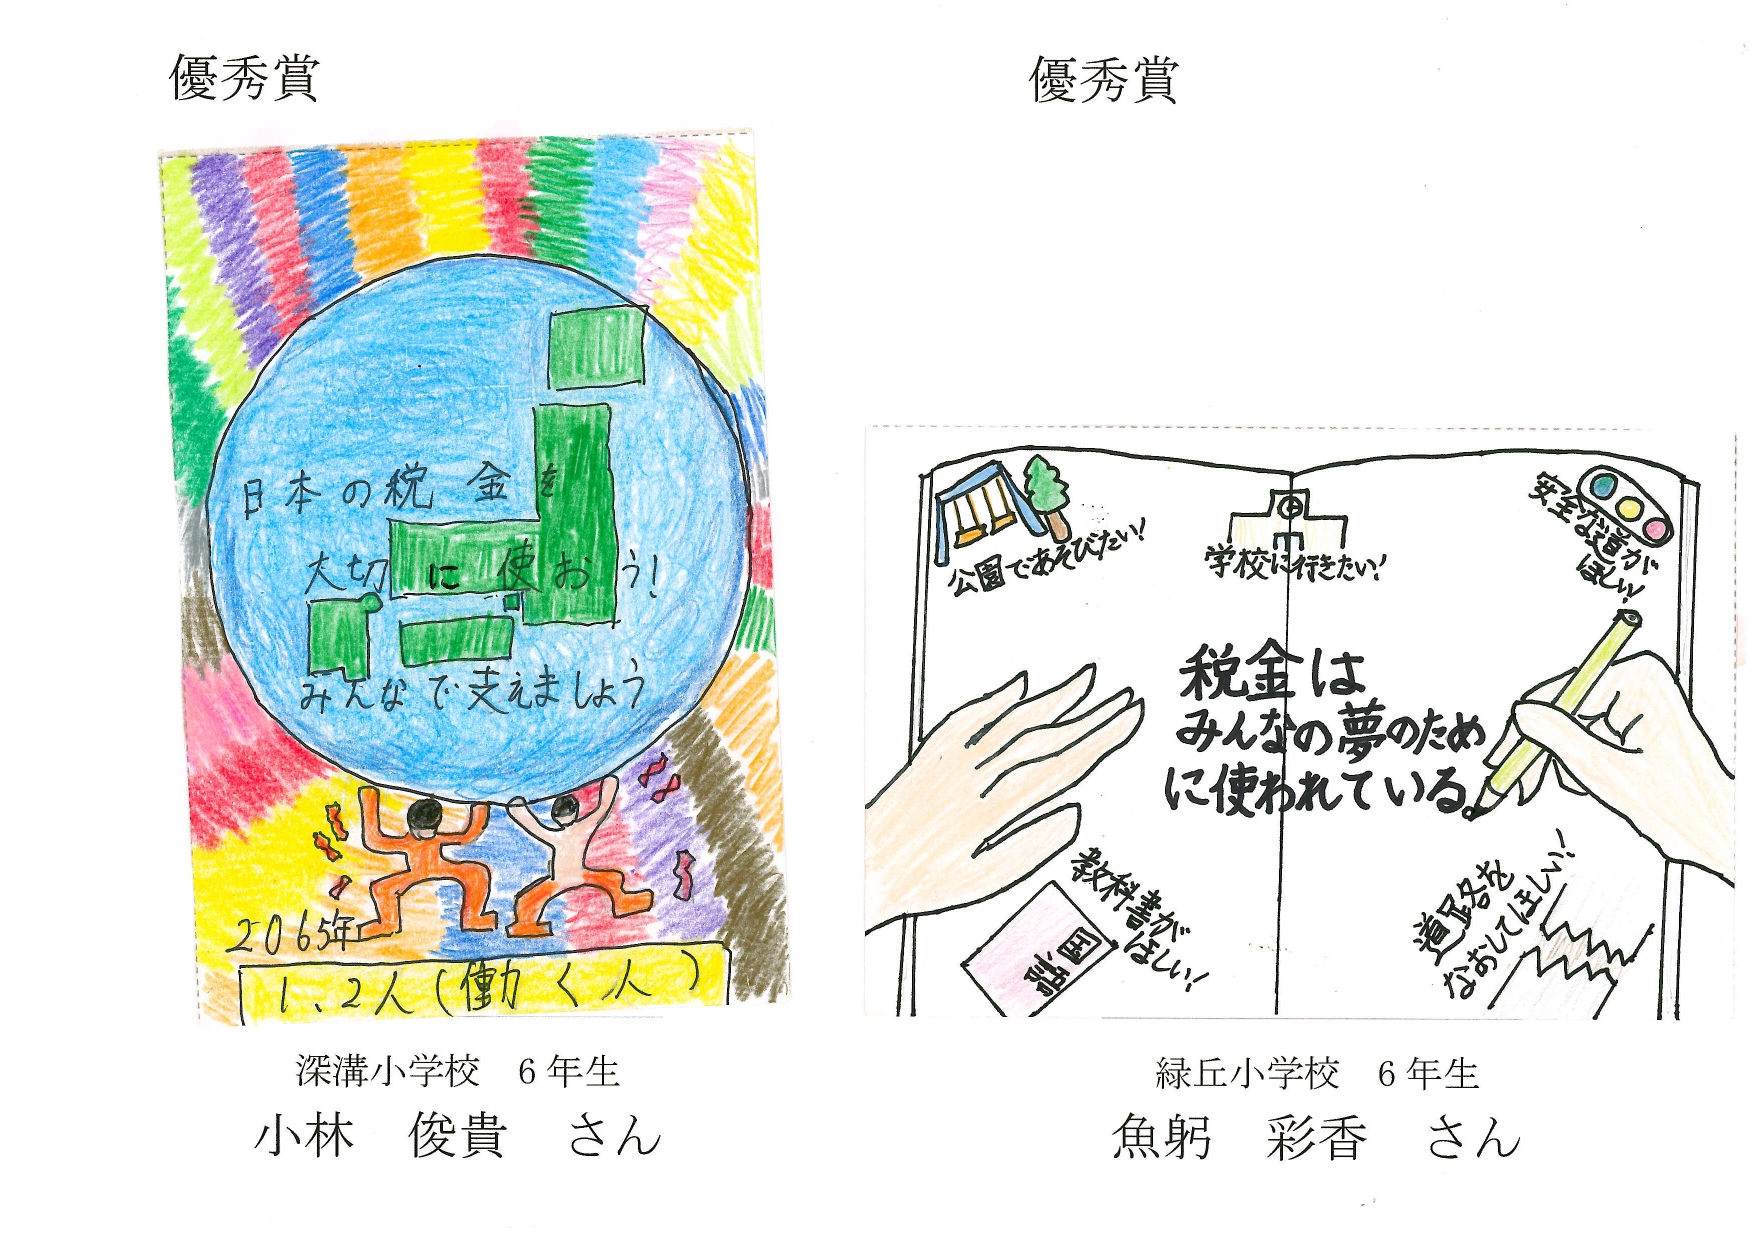 優秀賞
日本の税金を
大切に使おう!
みんなで支えましょう
2065年
1、2人(働く人)
深溝小学校 6年生
小林 俊貴 さん
優秀賞
公園であそびたい!
学校に行きたい!
安全な道が
ほしい!
税金は
みんなの夢のため
に使われている。
教科書が
ほしい!
国語
道路を
なおしてほしい!
緑丘小学校 6年生
魚躬 彩香 さん